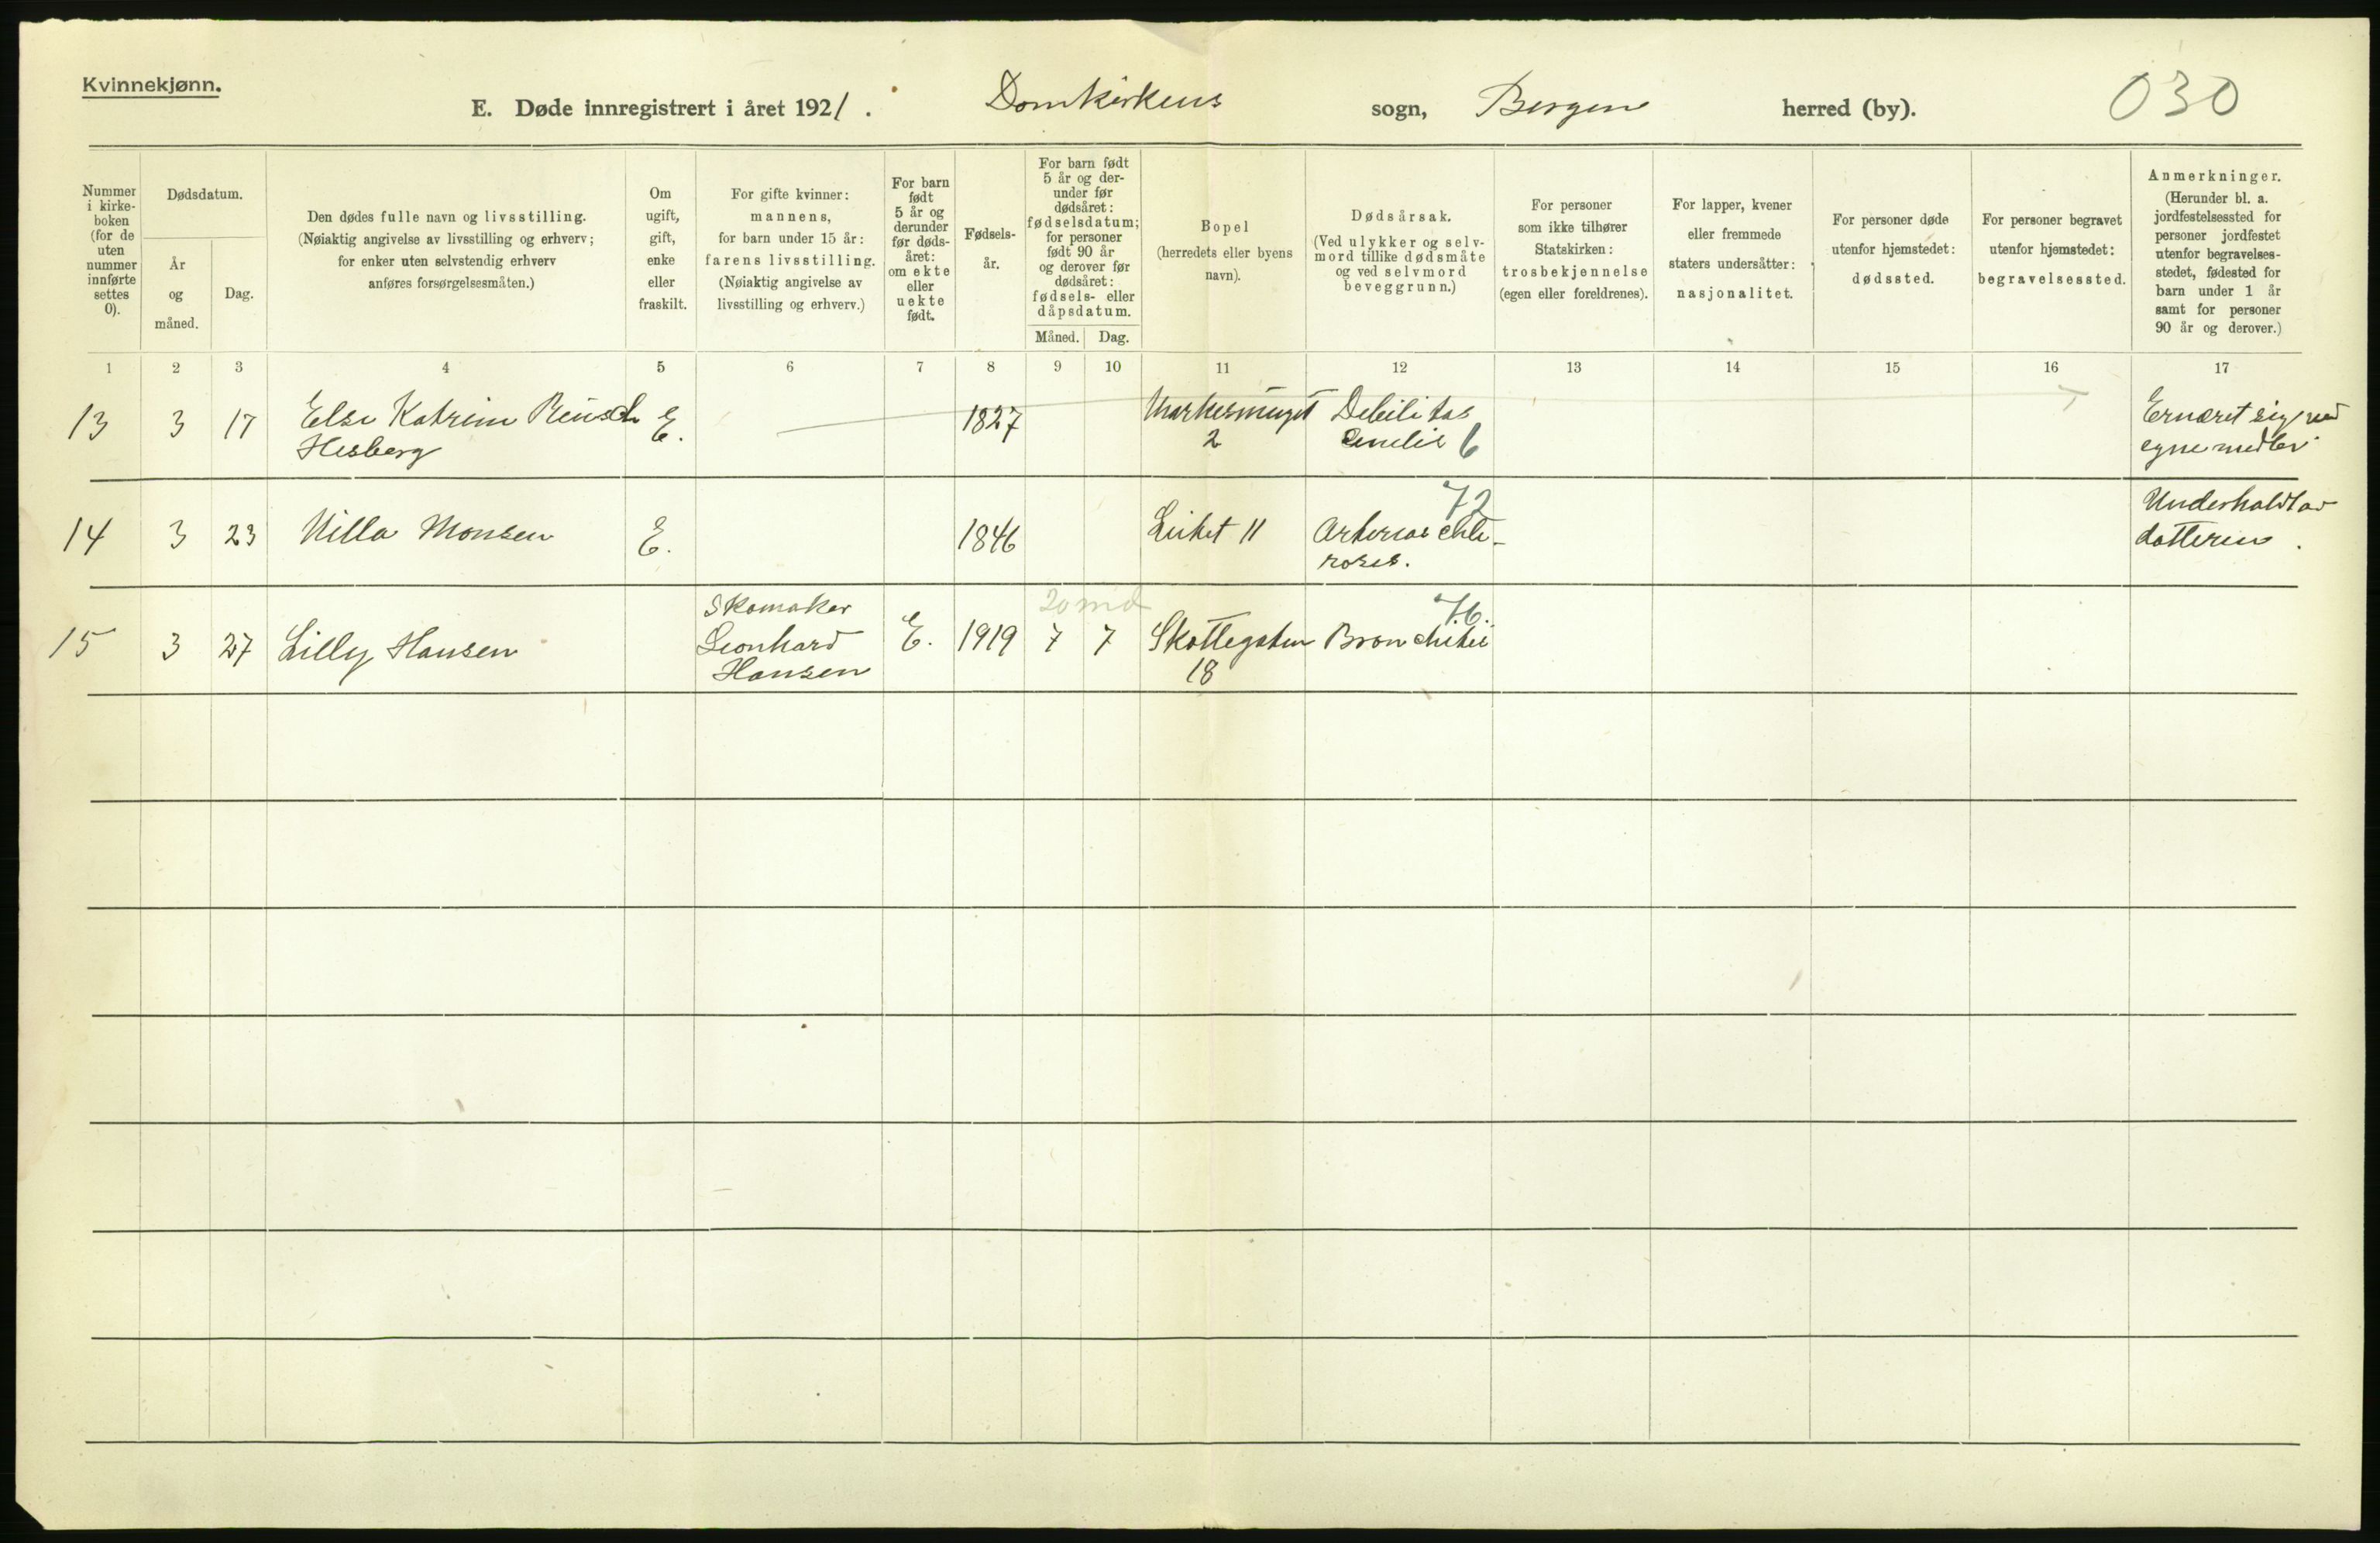 Kvinnekjønn.
E. Døde innregistrert i året 1921. Domkirkens sogn, Bergen herred (by). 030
Nummer i kirke-boken (for de uten nummer innførte settes 0).
Dødsdatum.
År og måned.
Dag.
Den dødes fulle navn og livsstilling.
(Nøiaktig angivelse av livsstilling og erhverv;
for enker uten selvstendig erhverv
anføres forsørgelsesmåten.)
Om ugift, gift, enke eller fraskilt.
For gifte kvinner:
mannens,
for barn under 15 år:
farens livsstilling.
(Nøiaktig angivelse av
livsstilling og erhverv.)
For barn født 5 år og derunder før døds-året: om ekte eller uekte født.
Fødsels-år.
For barn født 5 år og der-under før dødsåret: fødselsdatum; for personer født 90 år og derover før dødsåret: fødsels- eller dåpsdatum.
Måned. Dag.
Bopel
(herredets eller byens
navn).
Dødsårsak.
(Ved ulykker og selv-
mord tillike dødsmåte
og ved selvmord
beveggrunn.)
For personer
som ikke tilhører
Statskirken:
trosbekjennelse
(egen eller foreldrenes).
For lapper, kvener
eller fremmede
staters undersåtter:
nasjonalitet.
For personer døde
utenfor hjemstedet:
dødssted.
For personer begravet
utenfor hjemstedet:
begravelsessted.
Anmerkninger.
(Herunder bl. a.
jordfestelsessted for
personer jordfestet
utenfor begravelses-
stedet, fødested for
barn under 1 år
samt for personer
90 år og derover.)
1 2 3 4 5 6 7 8 9 10 11 12 13 14 15 16 17
13 3 17 Else Katrine Reusch E. 1827 Markesmuget Debilitas Ernæret sig ved
Hesberg 2 senilis 6 egne midler
72 Underholdt av
14 3 23 Milla Monsen E. 1846 Lirket 11 Arterioschle-
roses. datteren.
Skomaker 20 md 7.6.
15 3 27 Lilly Hansen Leonhard E. 1919 7 7 Skottegaten Bronchitis
Hansen 18